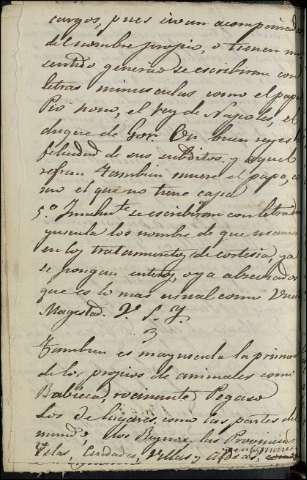 cargos, pues si van acompañados
del nombre propio, o tienen un
sentido general se escribiran con
letras minusculas como el papa
Pio nono, el rey de Napoles, el
duque de Gor. Un buen rey es
felicidad de sus subditos, y aquel
refran Tambien muere el papa, co
mo el que no tiene capa
5.º Finalm.te se escribiran con letra
yuscula los nombres de que usamos
en los tratamientos de cortesia, ya
se pongan enteros, o ya abreviados
que es lo mas usual como Vues
Magestad. V. S. Y.
3
Tambien es mayuscula la primera
de los propios de animales como
Babieca, rocinante, Pegaso
Los de lugares, como las partes del
mundo, los Reynos, las Provincias
Yslas, Ciudades, Villas y aldeas, como